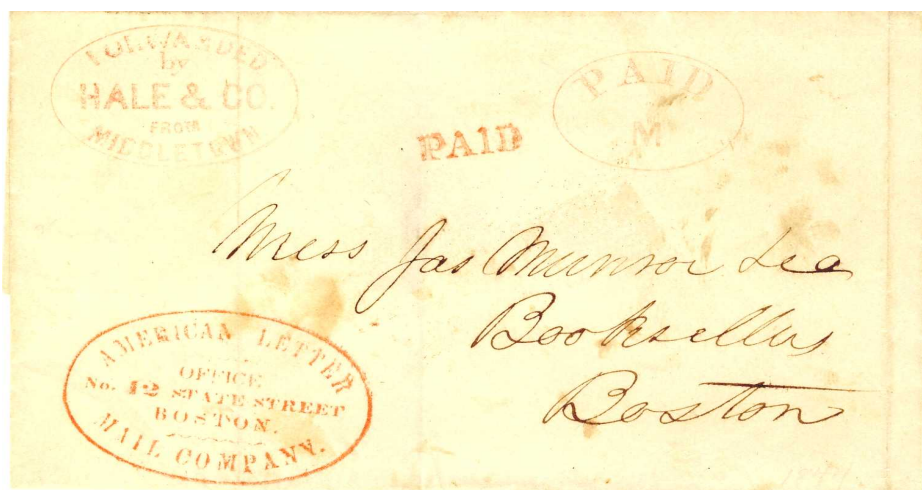 FORWARDED
by
HALE & CO.
FROM
MIDDLETOWN
PAID
PAID
M
Mess Jas Munroe & Co
Booksellers
Boston
AMERICAN LETTER
OFFICE
No. 12 STATE STREET
BOSTON.
MAIL COMPANY.